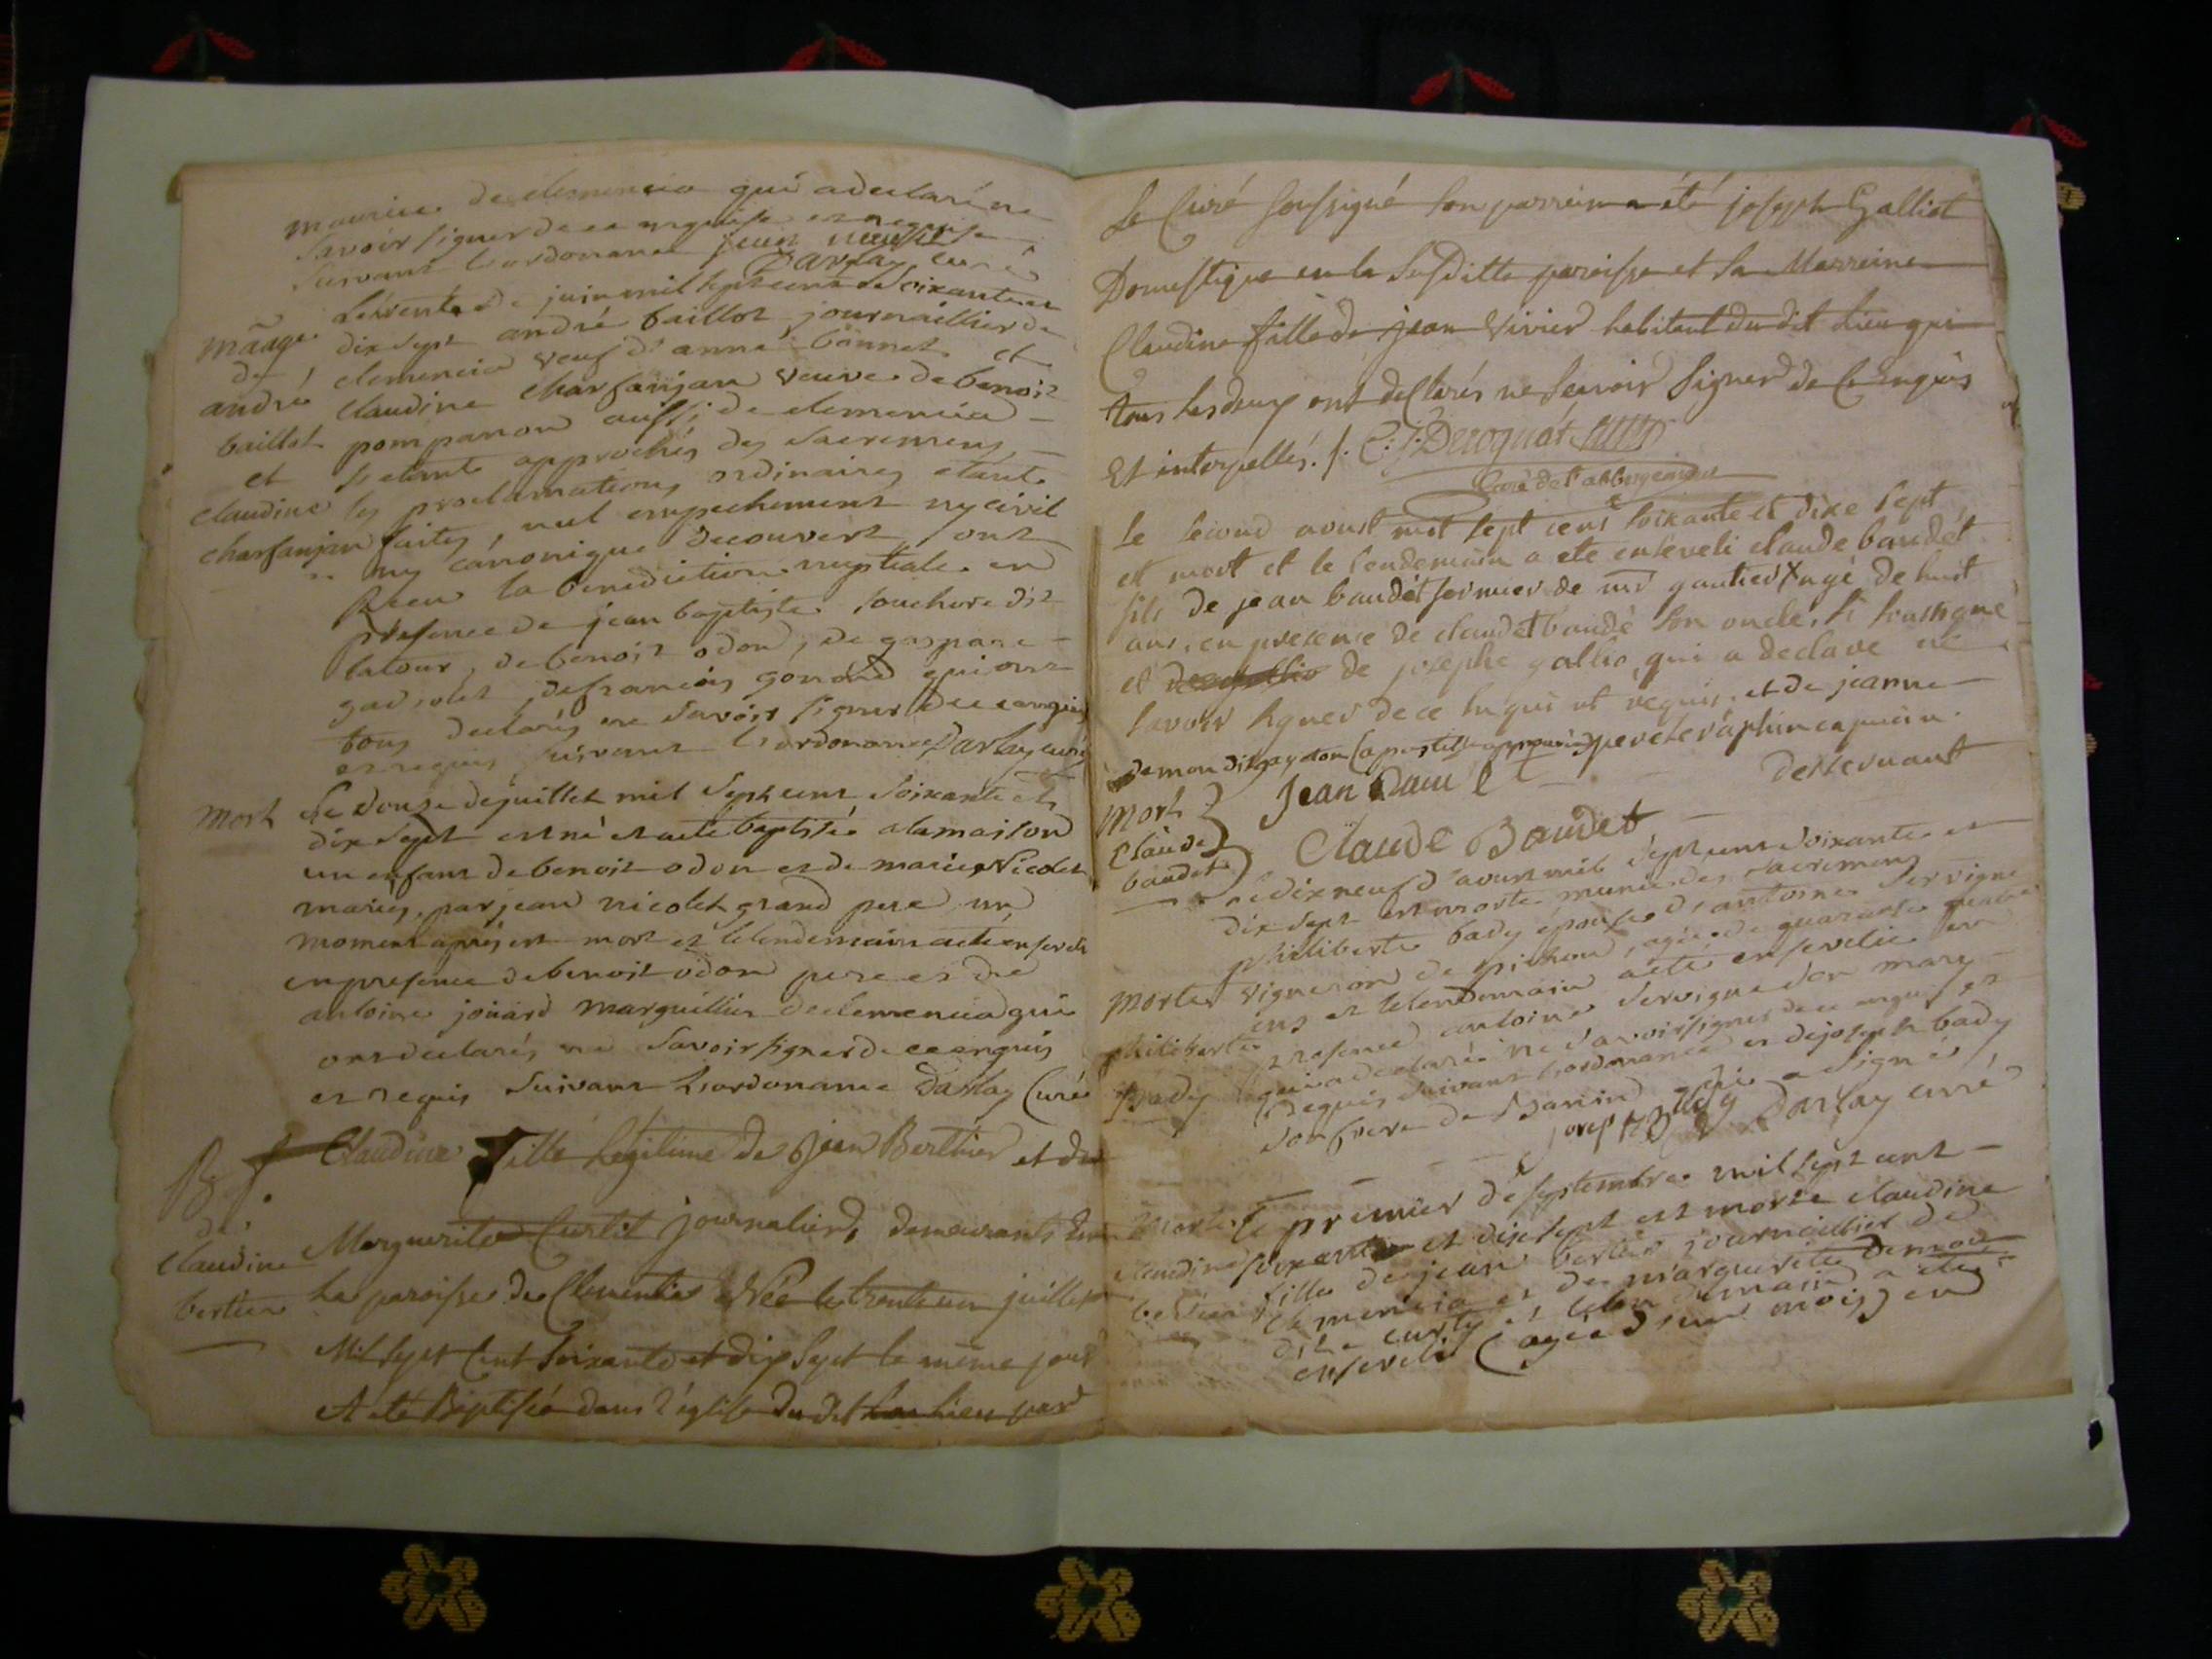 maurice de clemencia qui a declaré ne
savoir signer de ce enquise et requise
suivant l'ordonance jean
Darlay curé
Le trente de juin mil sept cent soixante et
mãage dix sept andré baillot journaillier de
de clemencia veuf d'anne bonnet et
andré claudine charfanjan veuve de benoit
baillot pompanon aussi de clemencia
et s'etant approchés des sacremens
claudine les proclamations ordinaires etant
charfanjan faites, nul empechement ny civil
ny canonique decouvert, ont
Receu la benediction nuptiale en
presence de jean baptiste souchere dit
latour, de benoit odon, de gaspard
, de francois gonond qui ont
tous declarés ne savoir signer de ce enquis
et requis suivant l'ordonance Darlay curé
mort Le douze de juillet mil sept cent soixante et
dix sept est né et a été baptisé a la maison
un enfant de benoit odon et de marie Nicolet
mariés, par jean nicolet grand pere un
moment après est mort et le lendemain a été enseveli
en presence de benoit odon pere et de
antoine jouard marguillier de clemencia qui
ont declarés ne savoir signer de ce enquis
et requis suivant l'ordonance Darlay Curé
Claudine fille legitime de Jean Berthier et de
B.
de Marguerite Curtil journaliers demeurants en
claudine la paroisse de Clementia Née le trente un juillet
bertier
Mil sept cent soixante et dix sept le même jour
A eté Baptisée dans l'église du dit lieu par
Le Curé soussigné son parrein a été joseph Galliot
Domestique en la susditte paroisse et sa Marreine
Claudine fille de jean Vivier habitant du dit lieu qui
tous les deux ont declarés ne scavoir signer de ce Enquis
Et interpellés. /. C: J: Decroquat
Curé de l'abbergement
le second aoust mil sept cens soixante et dixe sept
est mort et le lendemain a ete enseveli claude baudet
fils de jean baudet fermier de mr gautier X agé de huit
ans, en presence de claude baudé son oncle, si soussigné
et de josephe gallio qui a declaré ne
savoir signer de ce enquis et requis, et de jeanne
pere seraphin capucin
desservant
mort Jean Paul
Claude
baudet Claude Baudet
Le dix neuf d'aoust mil sept cens soixante et
dix sept est morte munie des sacremens
philiberte bady épouse d'antoine servigne
morte vigneron de , agée de quarante quatre
ans et le lendemain a été ensevelie en
philiberte presence antoine servigne son mary
qui a declaré ne savoir signer de ce enquis et
bady requis suivant l'ordonance et de joseph bady
son frere de qui a signé
joseph Bady Darlay curé
morte Le premier de septembre mil sept cent
claudine soixante et dix sept est morte claudine
bertier fille de jean bertier journaillier de
clemencia et de marguerite
dite curty et le lendemain a été
ensevelie (agée d'un mois) en